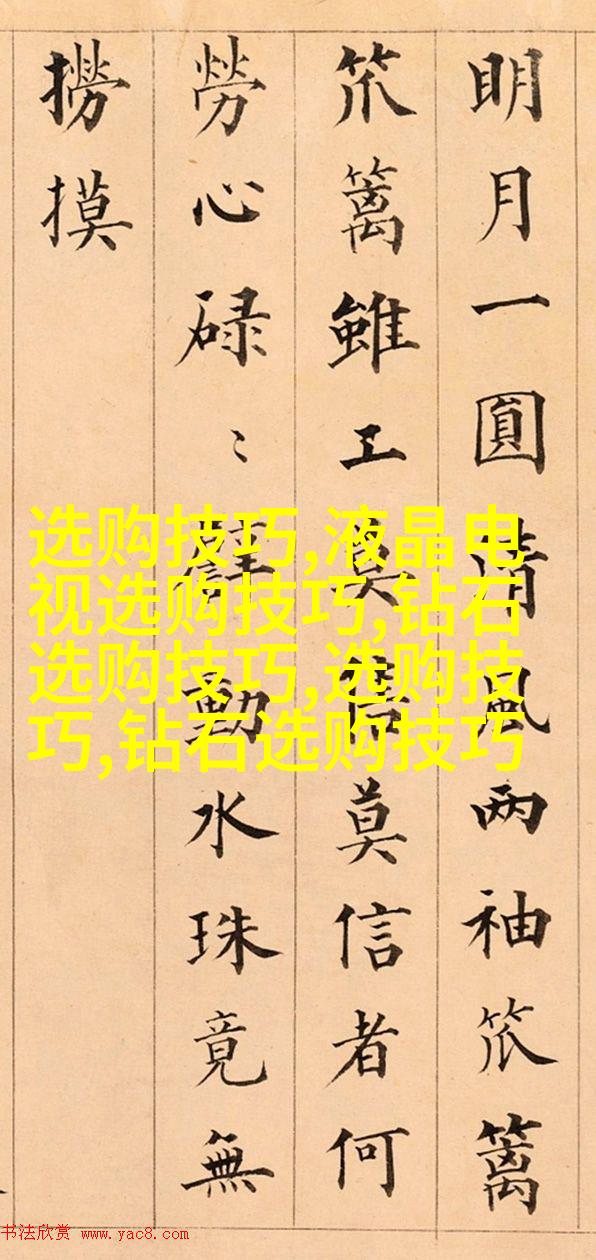 明月一圓清風两袖笊籬
笊籬雖工莫信莫信者何
勞心碌〻動水珠竟無
撈摸
选购技巧,液晶电
视选购技巧,钻石
选购技巧,选购技
巧,钻石选购技巧
书法欣赏 www.yac8.com